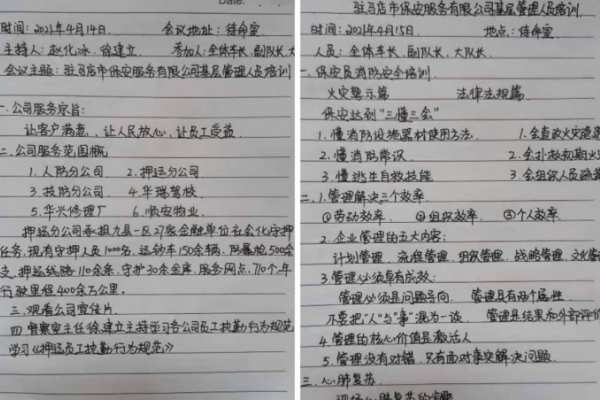 Date:
时间：2021年4月14日 会议地址：待命室
主持人：赵化冰、徐建立 参加人：全体车长、副队长、大
会议主题：驻马店市保安服务有限公司基层管理人员培训
一.公司服务宗旨：
让客户满意、让人民放心，让员工受益.
二.公司服务范围概
1.人防分公司 2.押运分公司
3.技防分公司 4.华瑞驾校
5.华兴修理厂 6.恒安物业.
押运分公司承担九县一区27家金融单位社会化守押
任务，现有守押人员1000名，运钞车150余辆，防暴枪500余
支，押运线路110余条，守护30余金库，服务网点，710个.年
行驶里程400余万公里.
三.观看公司宣传片.
四 督察室主任徐建立主持学习各公司员工执勤行为规范
学习《押运员工执勤行为规范》
驻马店市保安服务有限公司基层管理人员培训.
时间：2021年4月15日 地点：待命室
人员：全体车长，副队长，大队长.
一.保安员消防安全培训.
火灾警示篇 法律法规篇.
保安达到“三懂三会”
1.懂消防设施器材使用方法. 1.会查改火灾隐
2.懂消防常识. 2.会扑救初期火
3.懂逃生自救技能 3.会组织人员疏
二.1.管理解决三个效率.
①劳动效率. ②组织效率 ③个人效率.
2.企业管理的五大内容：
计划管理、流程管理、组织管理、战略管理、文化
3.管理必须卓有成效：
管理必须是问题导向. 管理具有两个属性
不要把“人”与“事”混为一谈. 管理是结果和外部评价
4.管理的核心价值是激活人
5.管理没有对错，只有面对事实解决问题.
三.心肺复苏
现场心肺复苏的步骤